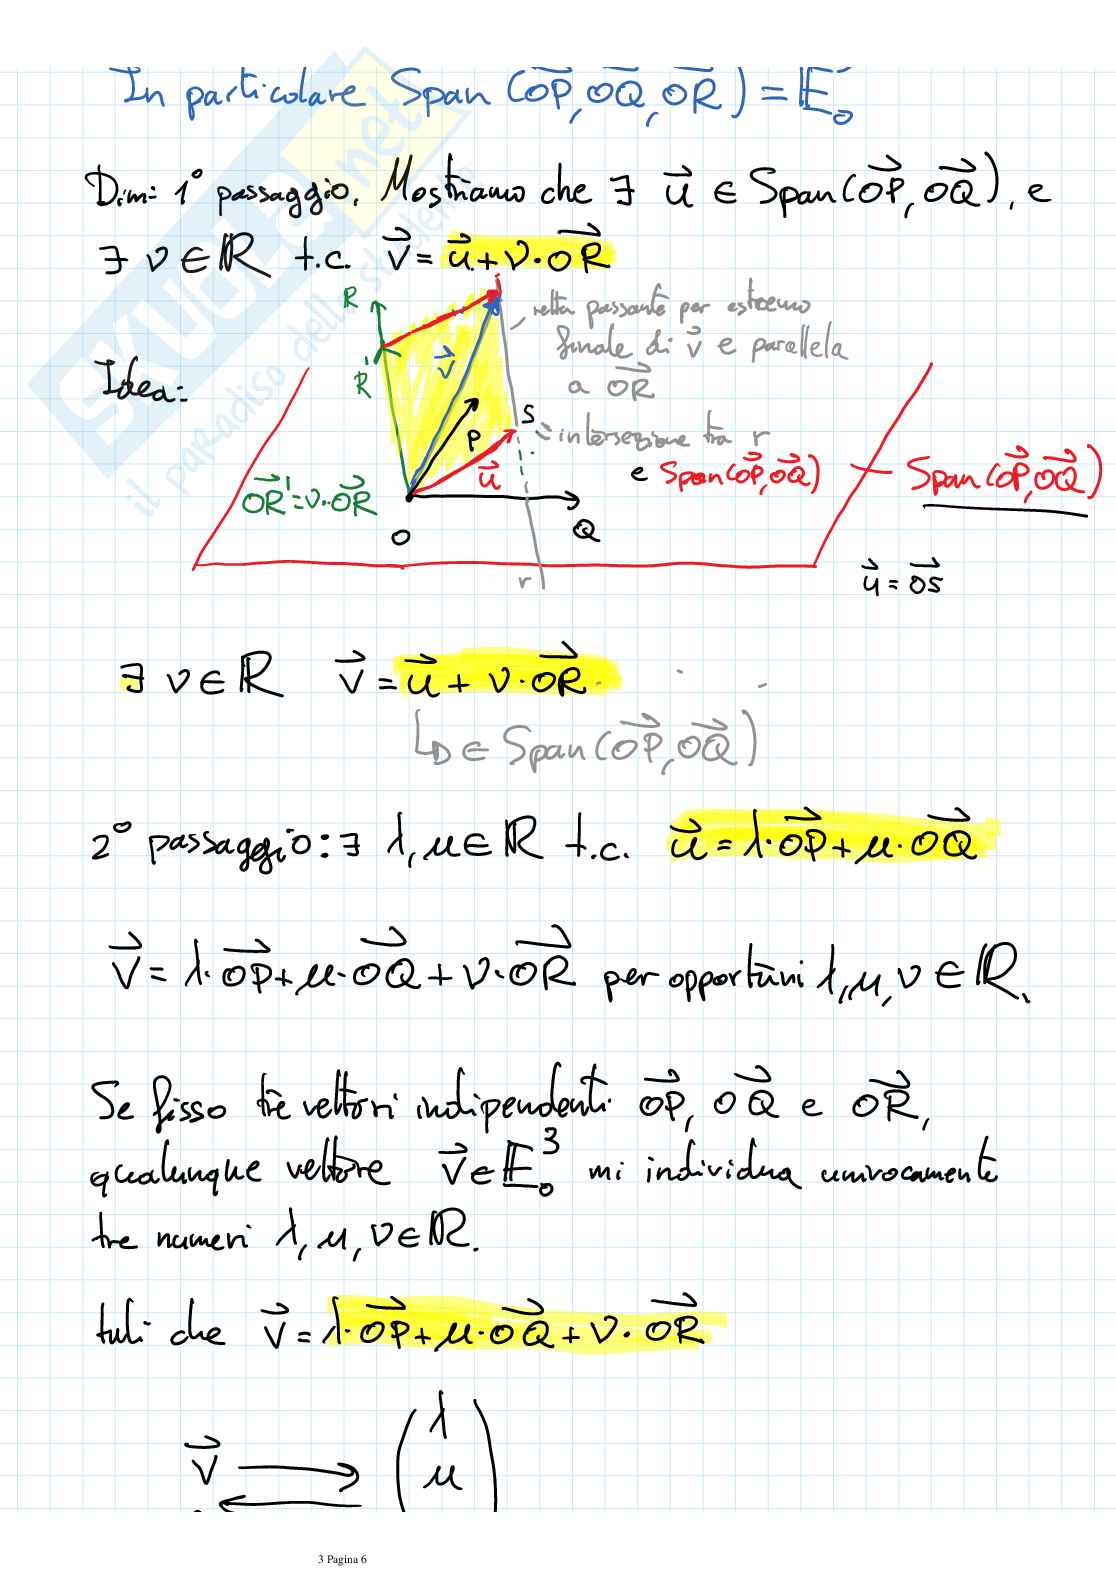 In particolare Span (OP, OQ, OR) = E₀
Dim: 1° passaggio. Mostriamo che ∃ u ∈ Span(OP, OQ), e
∃ ν ∈ ℝ t.c. v = u + ν·OR
R
retta passante per estremo
finale di v e parallela
a OR
Idea:
R'
v
P
S
= intersezione tra r
e Span(OP, OQ)
Span(OP, OQ)
OR' = ν·OR
u
O
Q
r
u = OS
∃ ν ∈ ℝ v = u + ν·OR
∈ Span(OP, OQ)
2° passaggio: ∃ λ, μ ∈ ℝ t.c. u = λ·OP + μ·OQ
v = λ·OP + μ·OQ + ν·OR per opportuni λ, μ, ν ∈ ℝ.
Se fisso tre vettori indipendenti OP, OQ e OR,
qualunque vettore v ∈ E₀³ mi individua univocamente
tre numeri λ, μ, ν ∈ ℝ.
tali che v = λ·OP + μ·OQ + ν·OR
v → ( λ
μ )
3 Pagina 6
SKUOLA.net
il paradiso dello studente